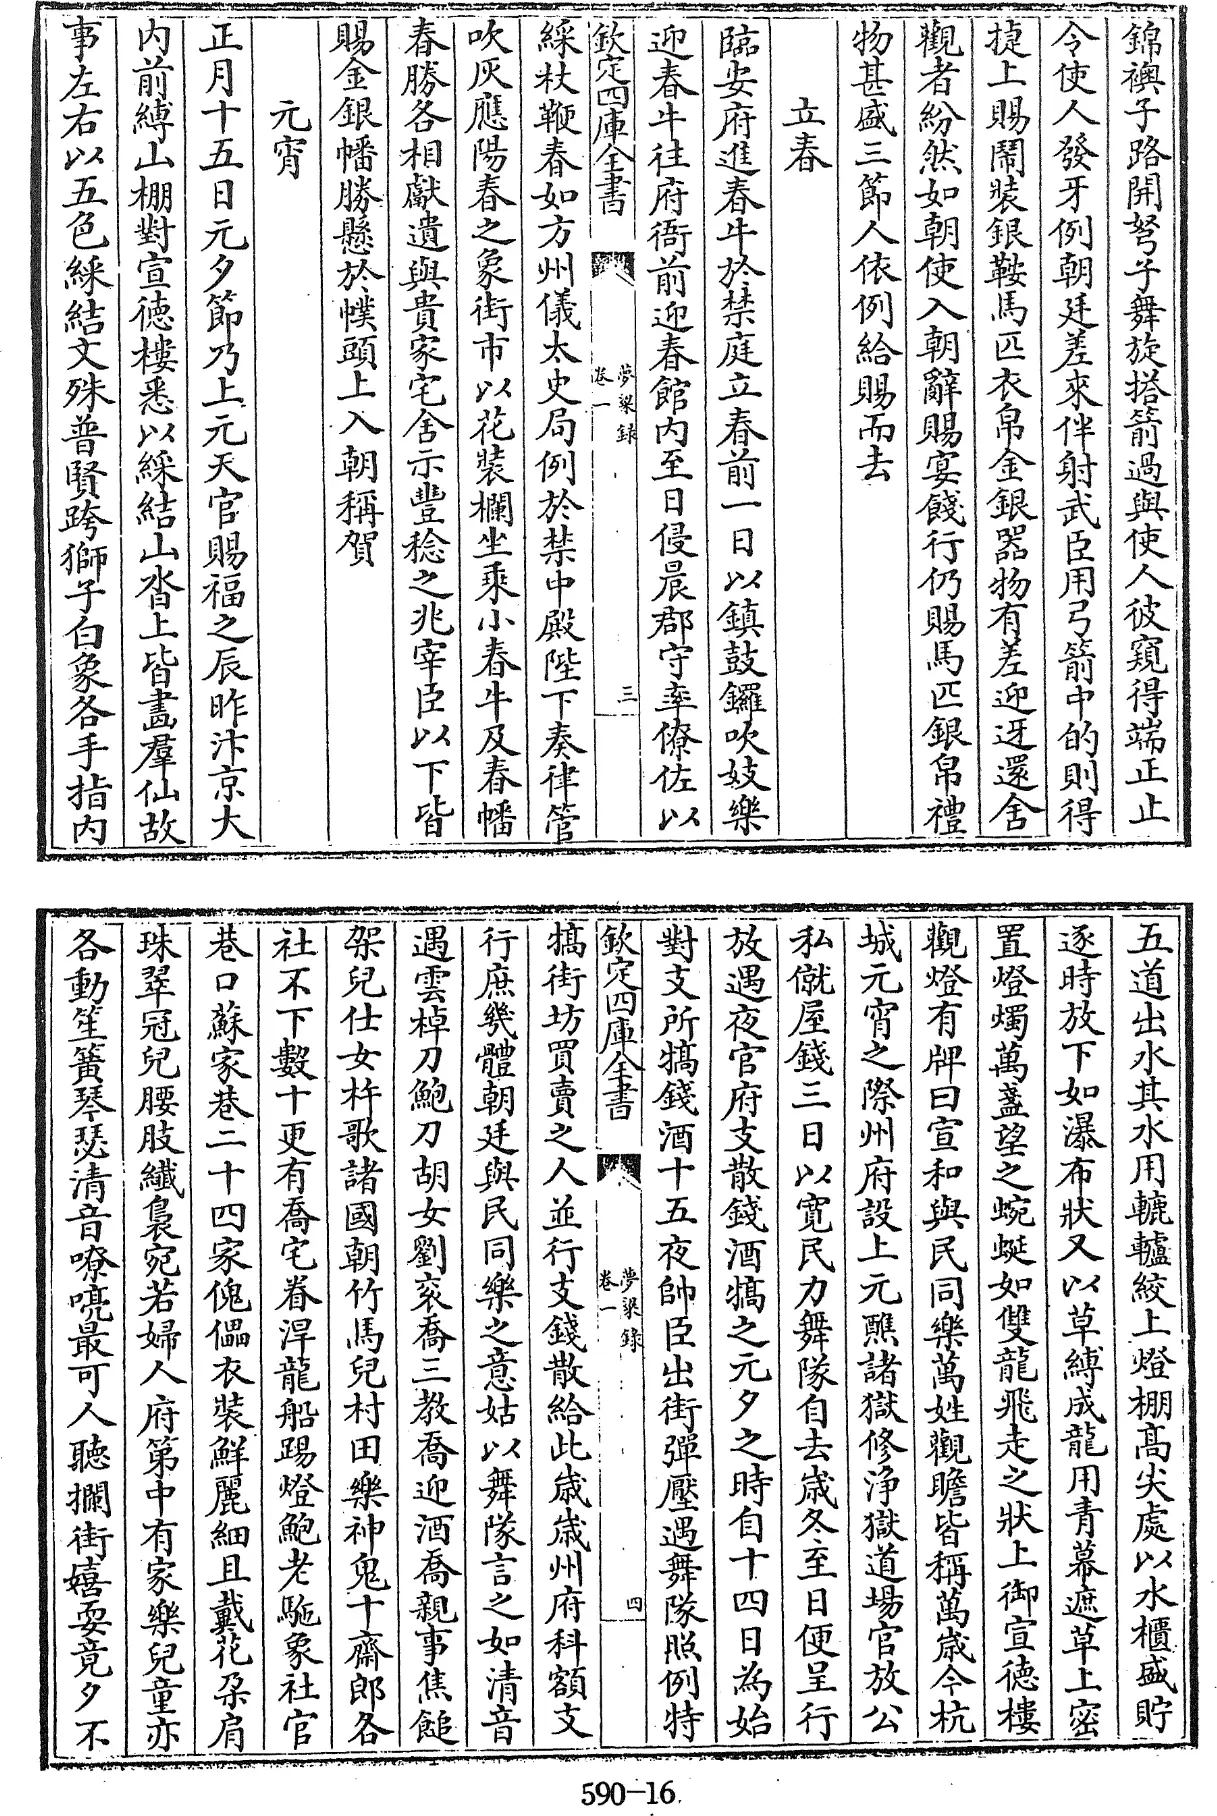 錦襖子路開弩子舞旋搭箭過與使人彼窺得端正止
令使人發牙例朝廷差來伴射武臣用弓箭中的則得
捷上賜鬧裝銀鞍馬匹衣帛金銀器物有差迎迓還舍
觀者紛然如朝使入朝辭賜宴餞行仍賜馬匹銀帛禮
物甚盛三節人依例給賜而去
立春
臨安府進春牛於禁庭立春前一日以鎮鼓鑼吹妓樂
迎春牛往府衙前迎春館内至日侵晨郡守率僚佐以
欽定四庫全書
夢粱録
卷一
三
綵杖鞭春如方州儀太史局例於禁中殿陛下奏律管
吹灰應陽春之象街市以花裝欄坐乘小春牛及春幡
春勝各相獻遺與貴家宅舍示豐稔之兆宰臣以下皆
賜金銀幡勝懸於幞頭上入朝稱賀
元宵
正月十五日元夕節乃上元天官賜福之辰昨汴京大
内前縛山棚對宣德樓悉以綵結山沓上皆畫羣仙故
事左右以五色綵結文殊普賢跨獅子白象各手指内
五道出水其水用轆轤絞上燈棚髙尖處以水櫃盛貯
逐時放下如瀑布狀又以草縛成龍用青幕遮草上密
置燈燭萬盞望之蜿蜒如雙龍飛走之狀上御宣德樓
觀燈有牌曰宣和與民同樂萬姓觀瞻皆稱萬歲今杭
城元宵之際州府設上元醮諸獄修淨獄道場官放公
私僦屋錢三日以寛民力舞隊自去歲冬至日便呈行
放遇夜官府支散錢酒犒之元夕之時自十四日為始
對支所犒錢酒十五夜帥臣出街彈壓遇舞隊照例特
欽定四庫全書
夢粱録
卷一
四
犒街坊買賣之人並行支錢散給此歲歲州府科額支
行庶幾體朝廷與民同樂之意姑以舞隊言之如清音
遏雲棹刀鮑刀胡女劉衮喬三教喬迎酒喬親事焦鎚
架兒仕女杵歌諸國朝竹馬兒村田樂神鬼十齋郎各
社不下數十更有喬宅眷㳯龍船踢燈鮑老駞象社官
巷口蘇家巷二十四家傀儡衣裝鮮麗細旦戴花朵肩
珠翠冠兒腰肢纖裊宛若婦人府第中有家樂兒童亦
各動笙簧琴瑟清音嘹喨最可人聽攔街嬉耍竟夕不
590-16